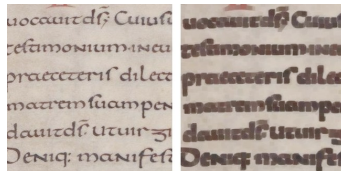 uocauit ds; Cuius
testimonium ineu
praeceteris dilec
matrem suam pen
dauit ds. Utuirgi
Deniq: manifest
uocauit ds; Cuius
testimonium ineu
praeceteris dilec
matrem suam pen
dauit ds. Utuirg
Deniq: manifest